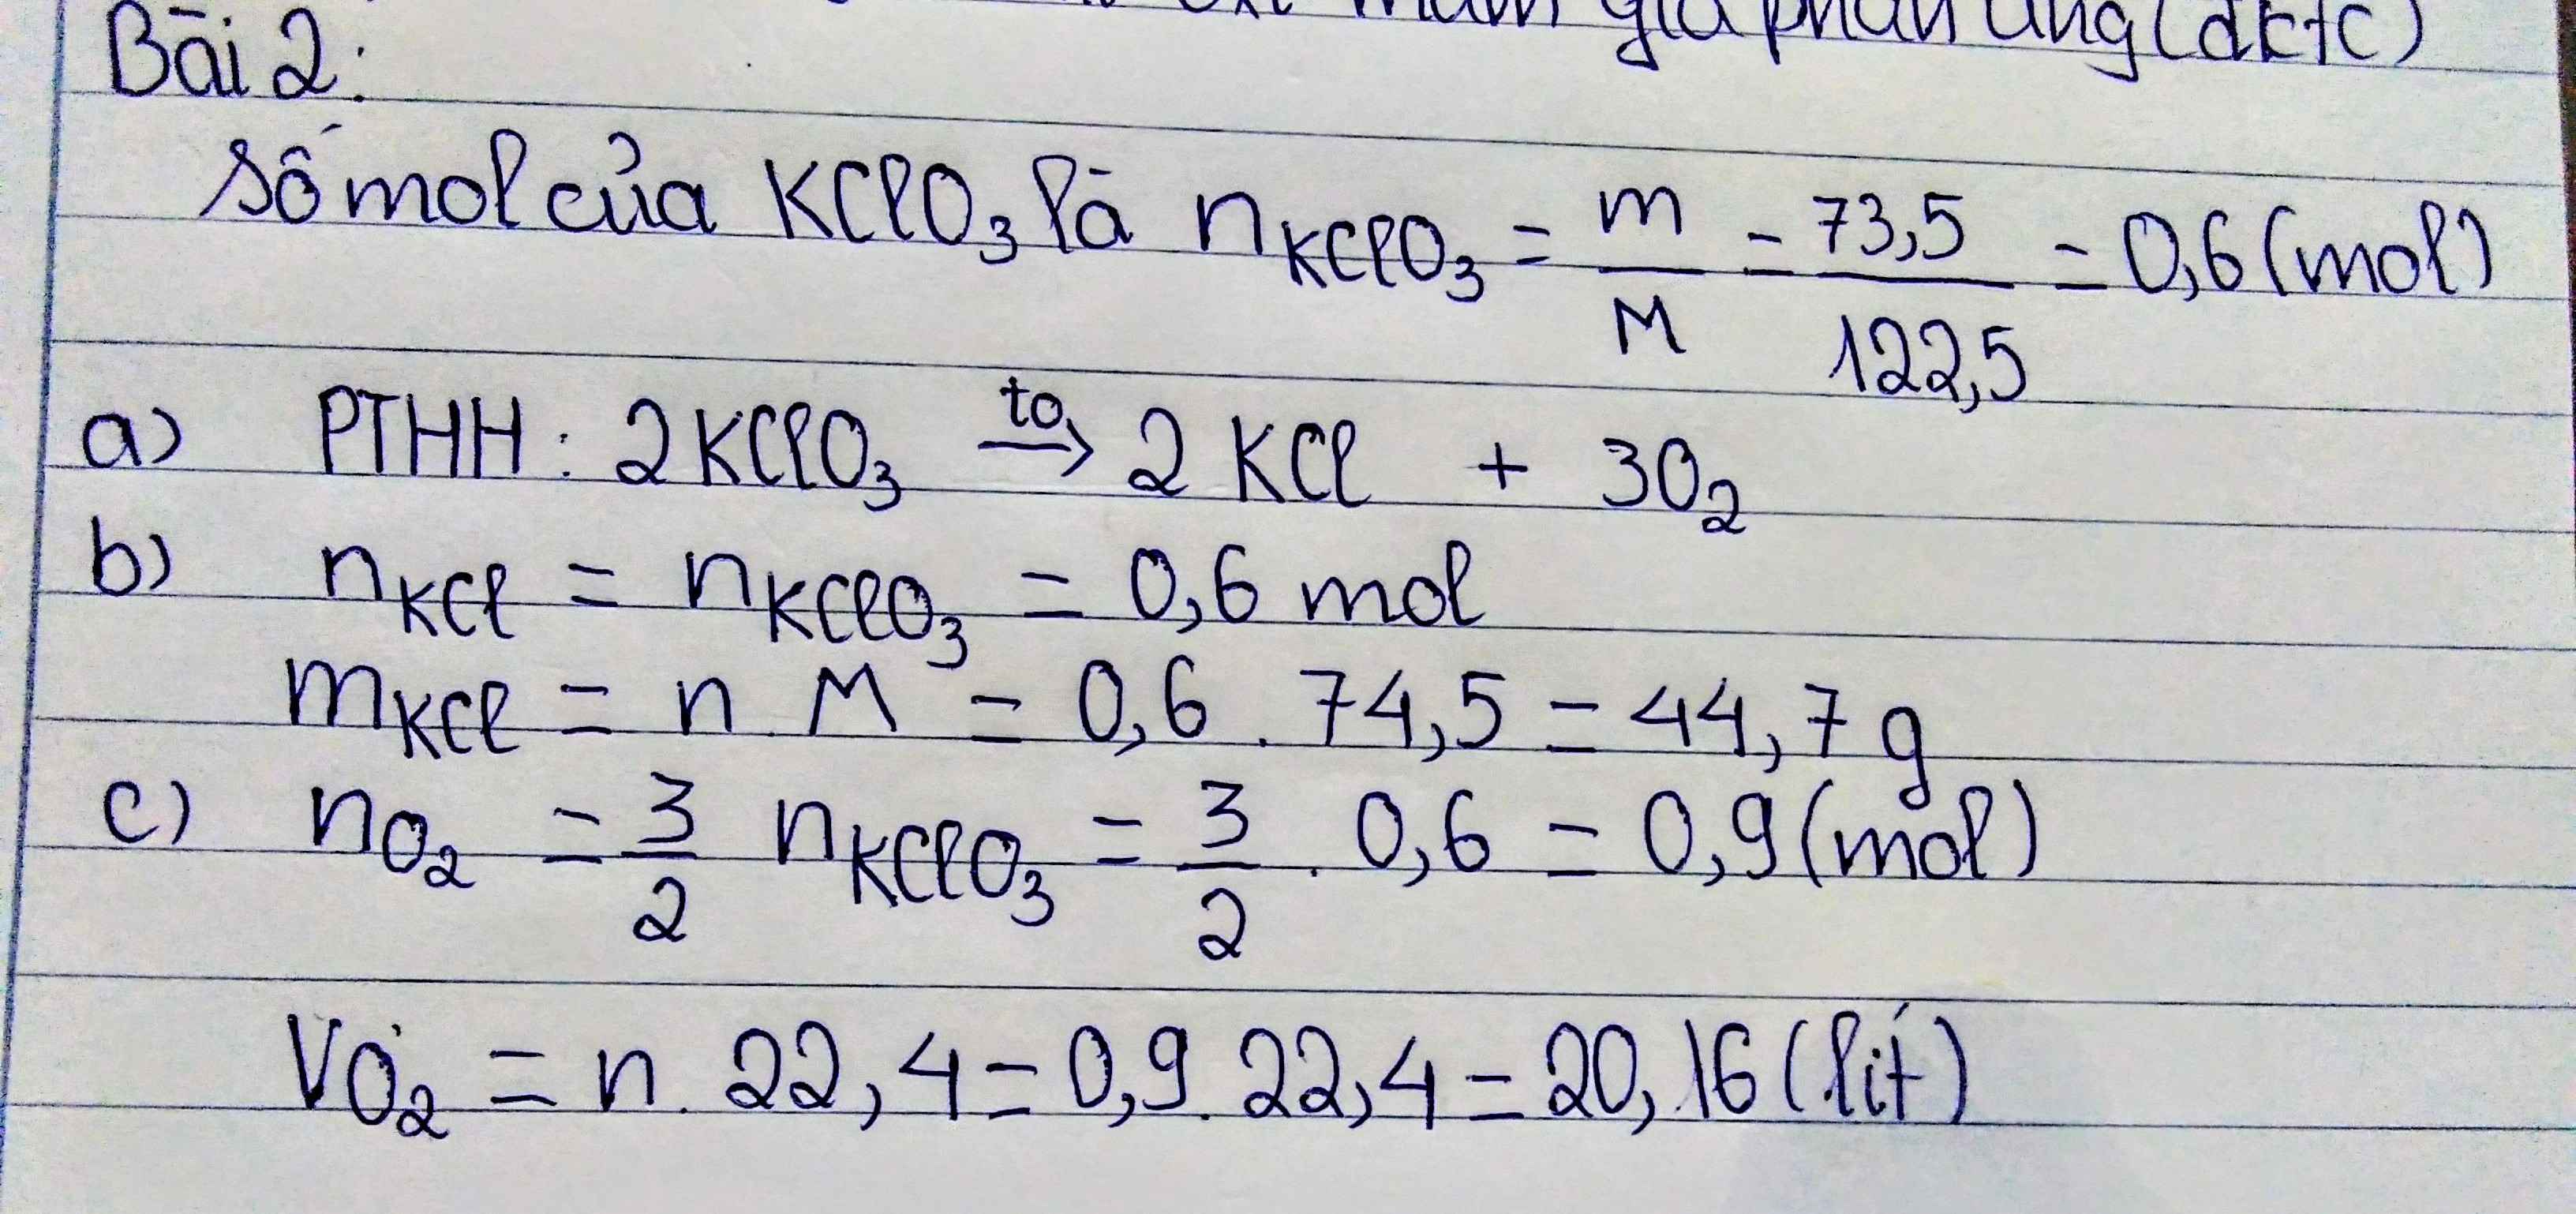 gia phản ứng (đktc)
Bài 2:
số mol của KClO₃ là n_KClO₃ = m/M = 73,5/122,5 = 0,6 (mol)
a) PTHH: 2KClO₃ →(to) 2 KCl + 3O₂
b) n_KCl = n_KClO₃ = 0,6 mol
m_KCl = n . M = 0,6 . 74,5 = 44,7 g
c) n_O₂ = 3/2 n_KClO₃ = 3/2 . 0,6 = 0,9 (mol)
V_O₂ = n . 22,4 = 0,9 . 22,4 = 20,16 (lít)